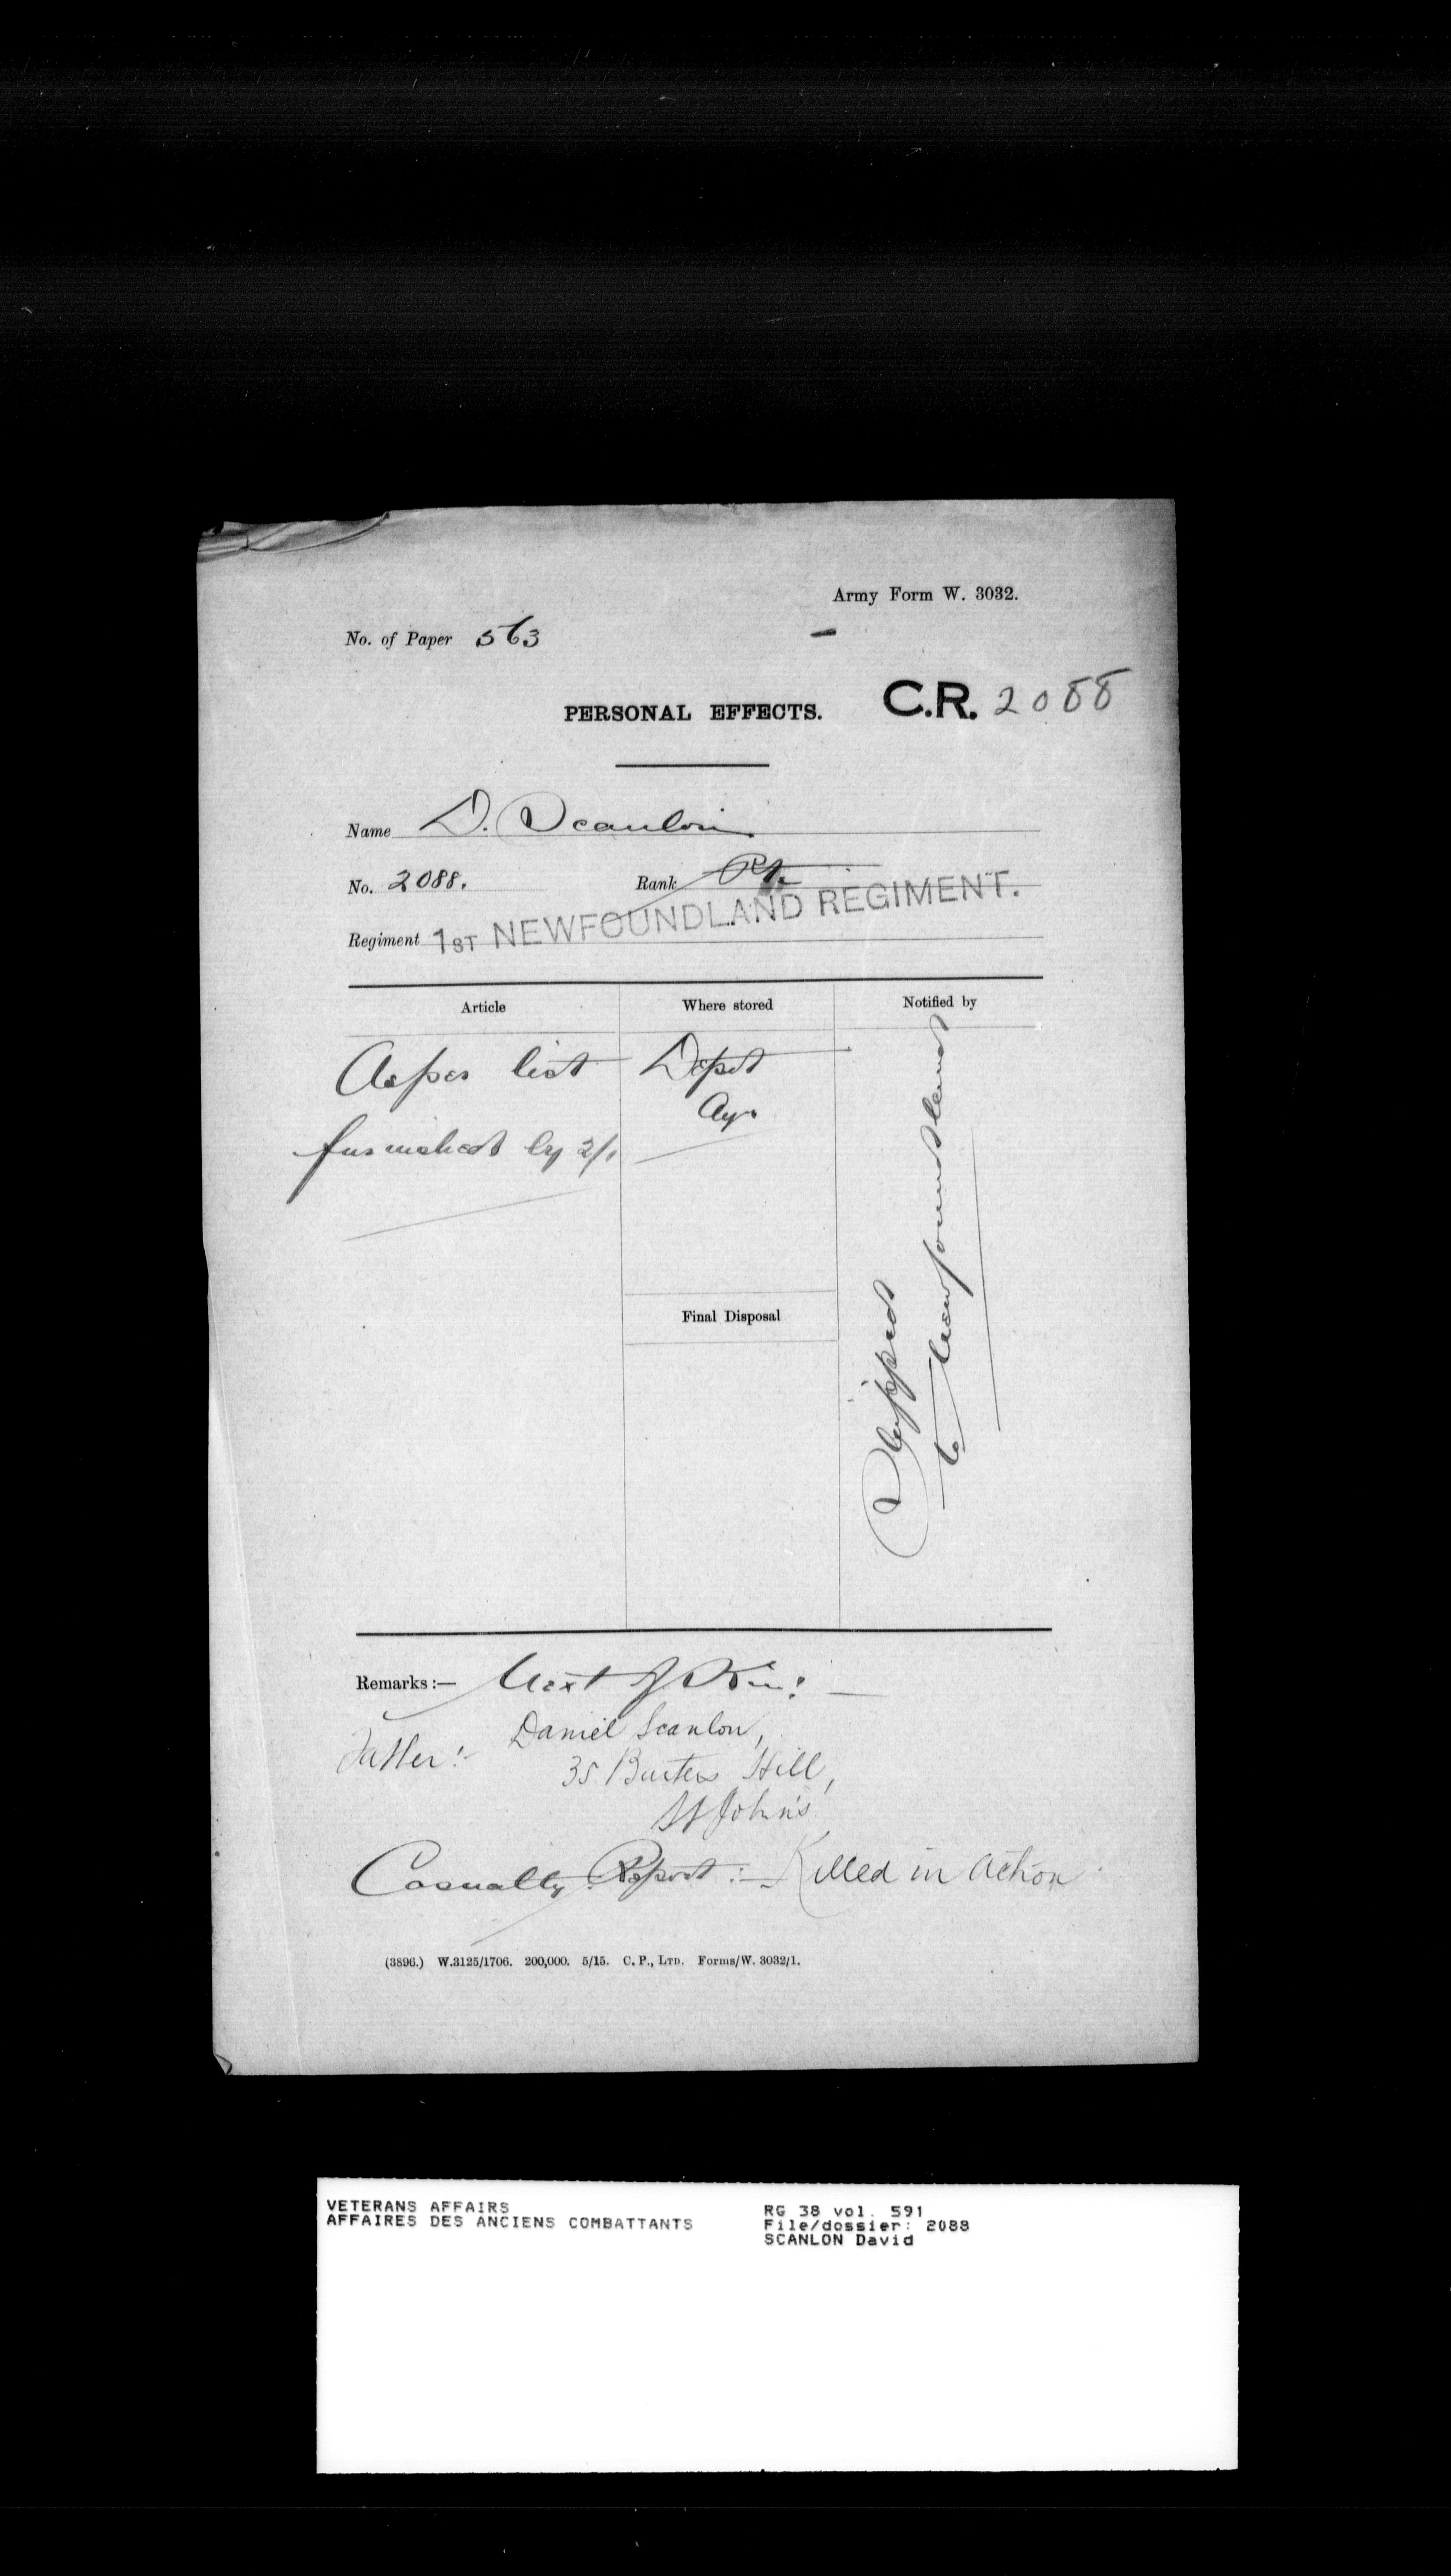 Army Form W. 3032.
No. of Paper 563
PERSONAL EFFECTS. C.R. 2088
Name D. Scanlon
No. 2088. Rank Pte.
Regiment 1ST NEWFOUNDLAND REGIMENT.
Article Where stored Notified by
As per list Depot
Ayr
furnished by 2/1
Shipped
to Newfoundland
Final Disposal
Remarks:— Next of Kin:—
Father:- Daniel Scanlon,
35 Buiters Hill,
St John's
Casualty Report:— Killed in Action
(3896.) W.3125/1706. 200,000. 5/15. C. P., LTD. Forms/W. 3032/1.
VETERANS AFFAIRS RG 38 vol. 591
AFFAIRES DES ANCIENS COMBATTANTS File/dossier: 2088
SCANLON David